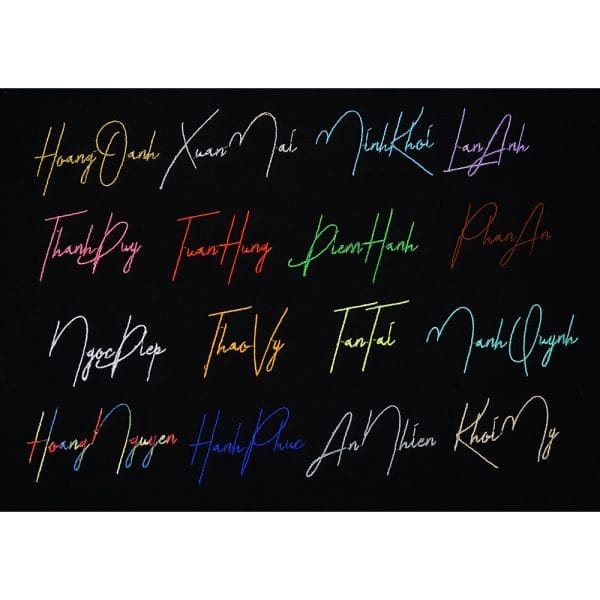 HoangOanh XuanMai MinhKhoi LanAnh
ThanhDuy TuanHung DiemHanh PhanAn
NgọcDiep ThaoVy TanTai ManhQuynh
HoangNguyen HanhPhuc AnNhien KhoiMy